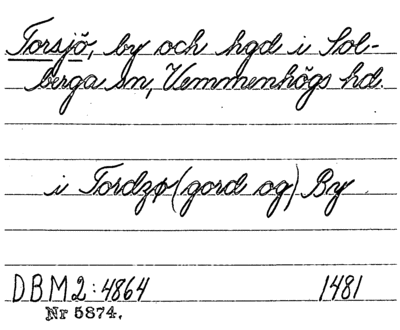 Torsjö, by och hgd i Sol-
berga sn, Vemmenhögs hd.
i Tordzø (gord og) By
DBM2:4864 1481
Nr 5874.